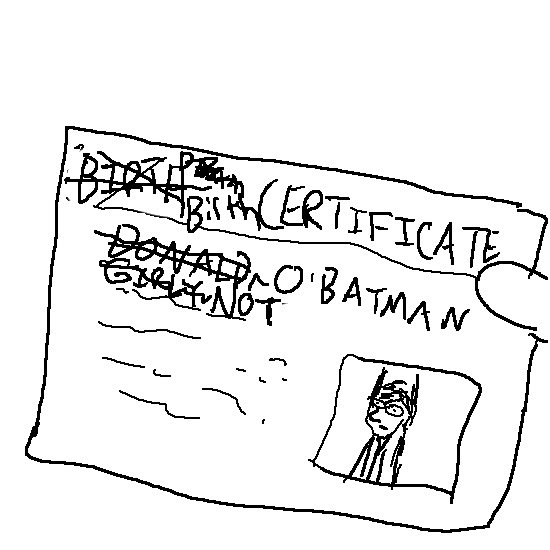 BIRTH Birth CERTIFICATE
DONALD~O'BATMAN
GIRLY~NOT